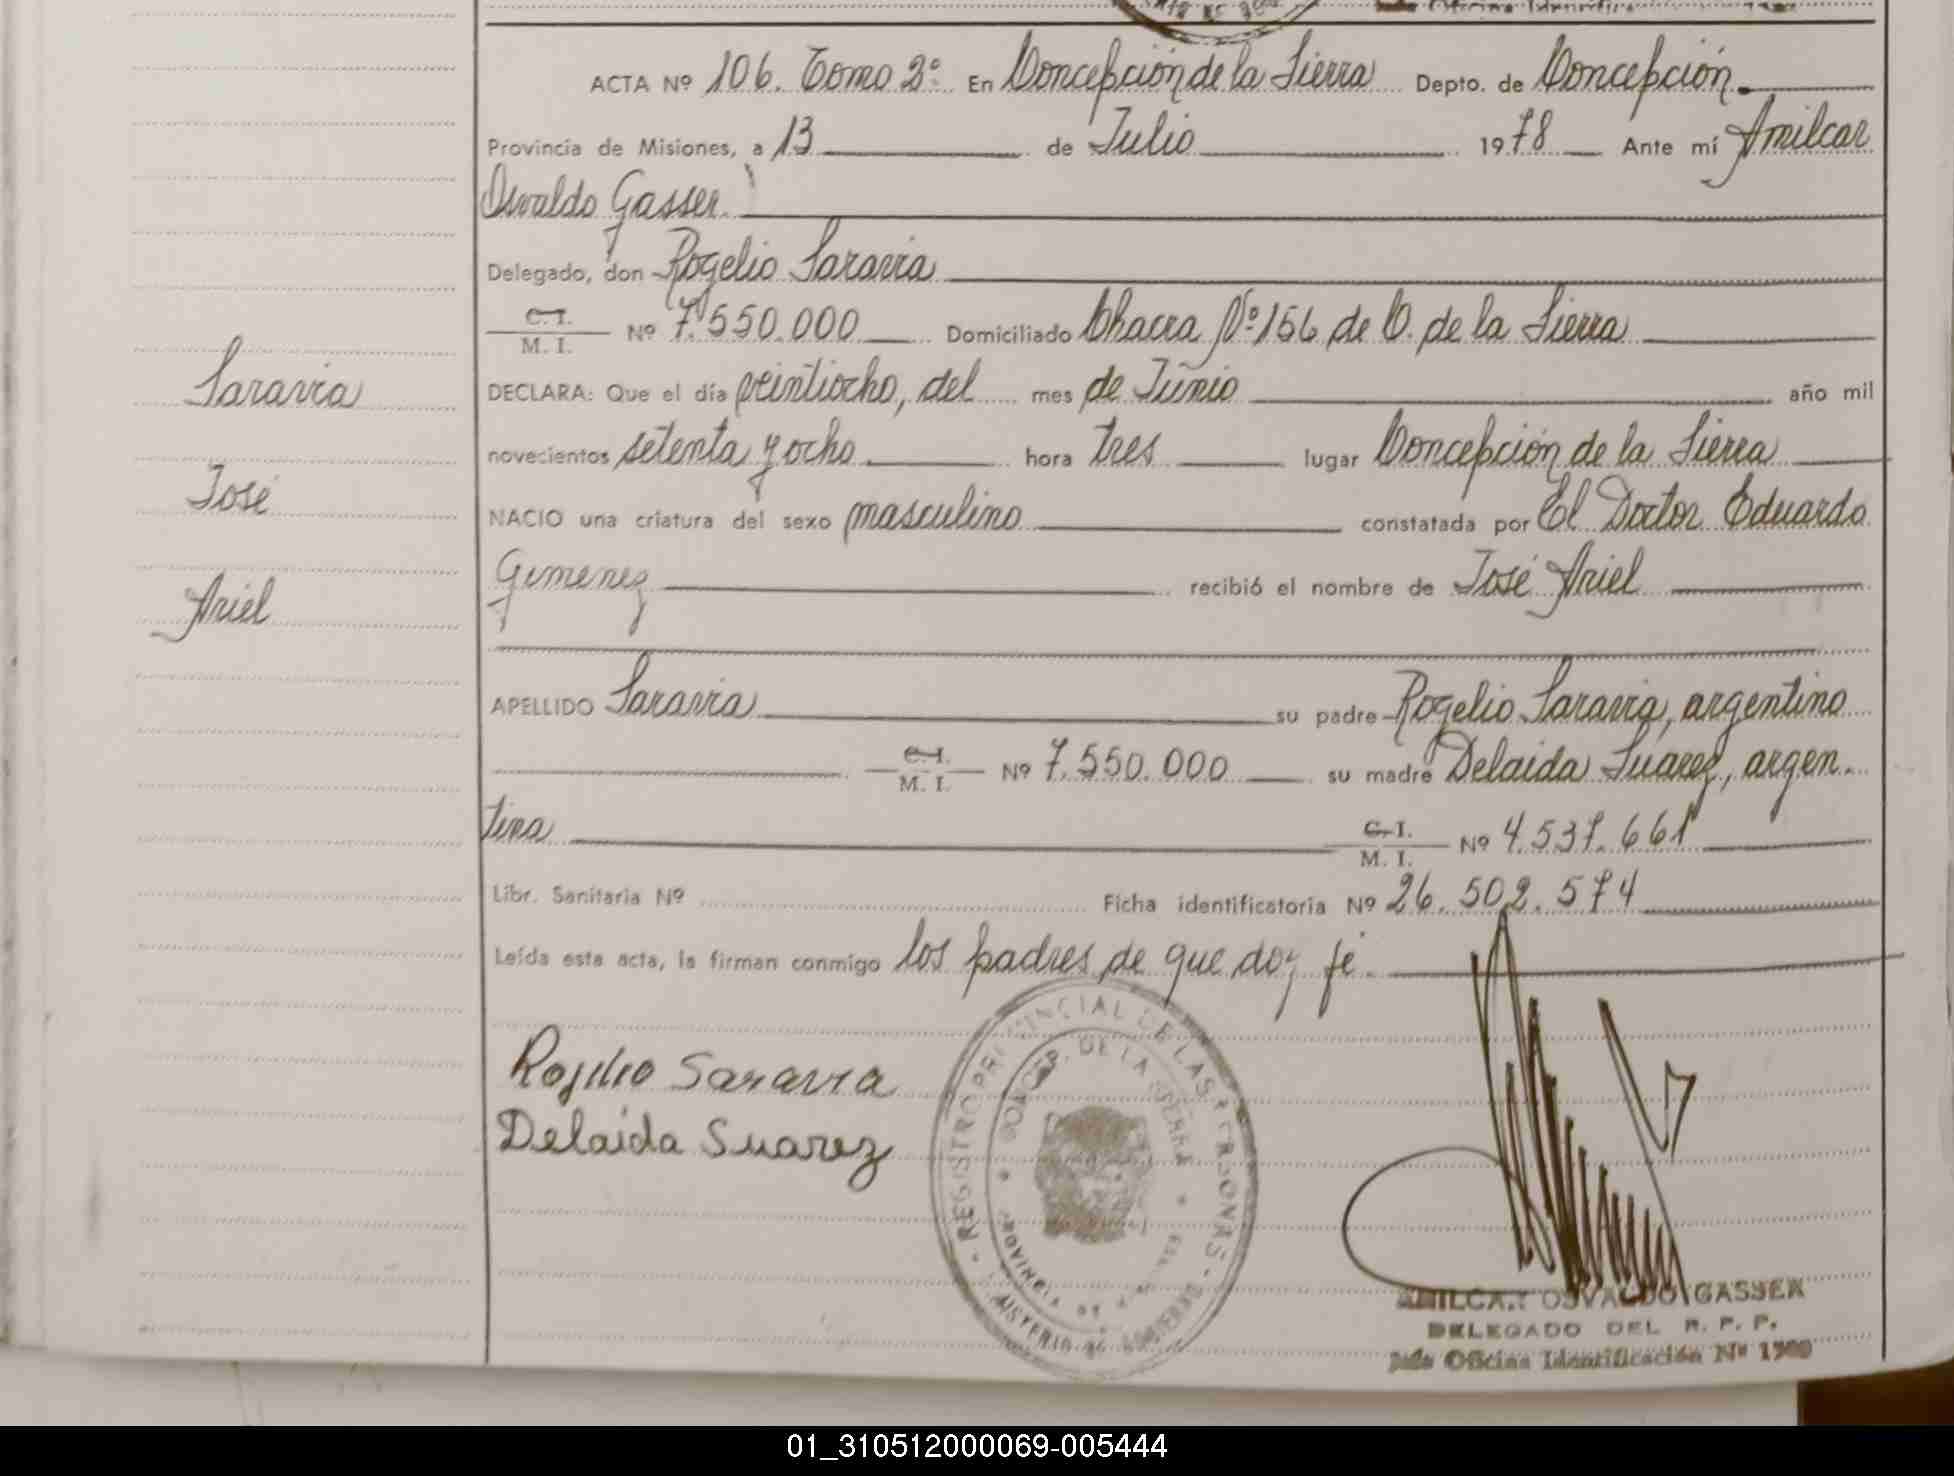 ACTA Nº 106. Tomo 2º En Concepción de la Sierra Depto. de Concepción.
Provincia de Misiones, a 13 de Julio 1978 Ante mí Amilcar
Osvaldo Gasser.
Delegado, don Rogelio Saravia
C.I. / M. I. Nº 7.550.000 Domiciliado Chacra Nº 156 de C. de la Sierra
DECLARA: Que el día veintiocho, del mes de Junio año mil
novecientos setenta y ocho hora tres lugar Concepción de la Sierra
NACIO una criatura del sexo masculino constatada por El Doctor Eduardo
Gimenez recibió el nombre de José Ariel
APELLIDO Saravia su padre Rogelio Saravia, argentino
C.I. / M. I. Nº 7.550.000 su madre Delaida Suarez, argen-
tina C.I. / M. I. Nº 4.537.661
Libr. Sanitaria Nº Ficha identificatoria Nº 26.502.574
Leída esta acta, la firman conmigo los padres de que doy fé.
Saravia
José
Ariel
Rojelio Saravia
Delaida Suarez
REGISTRO PROVINCIAL DE LAS PERSONAS
CONCEP. DE LA SIERRA
PROVINCIA DE
MINISTERIO DE GOBIERNO
AMILCAR OSVALDO GASSER
DELEGADO DEL R. P. P.
Jefe Oficina Identificación Nº 1500
01_310512000069-005444